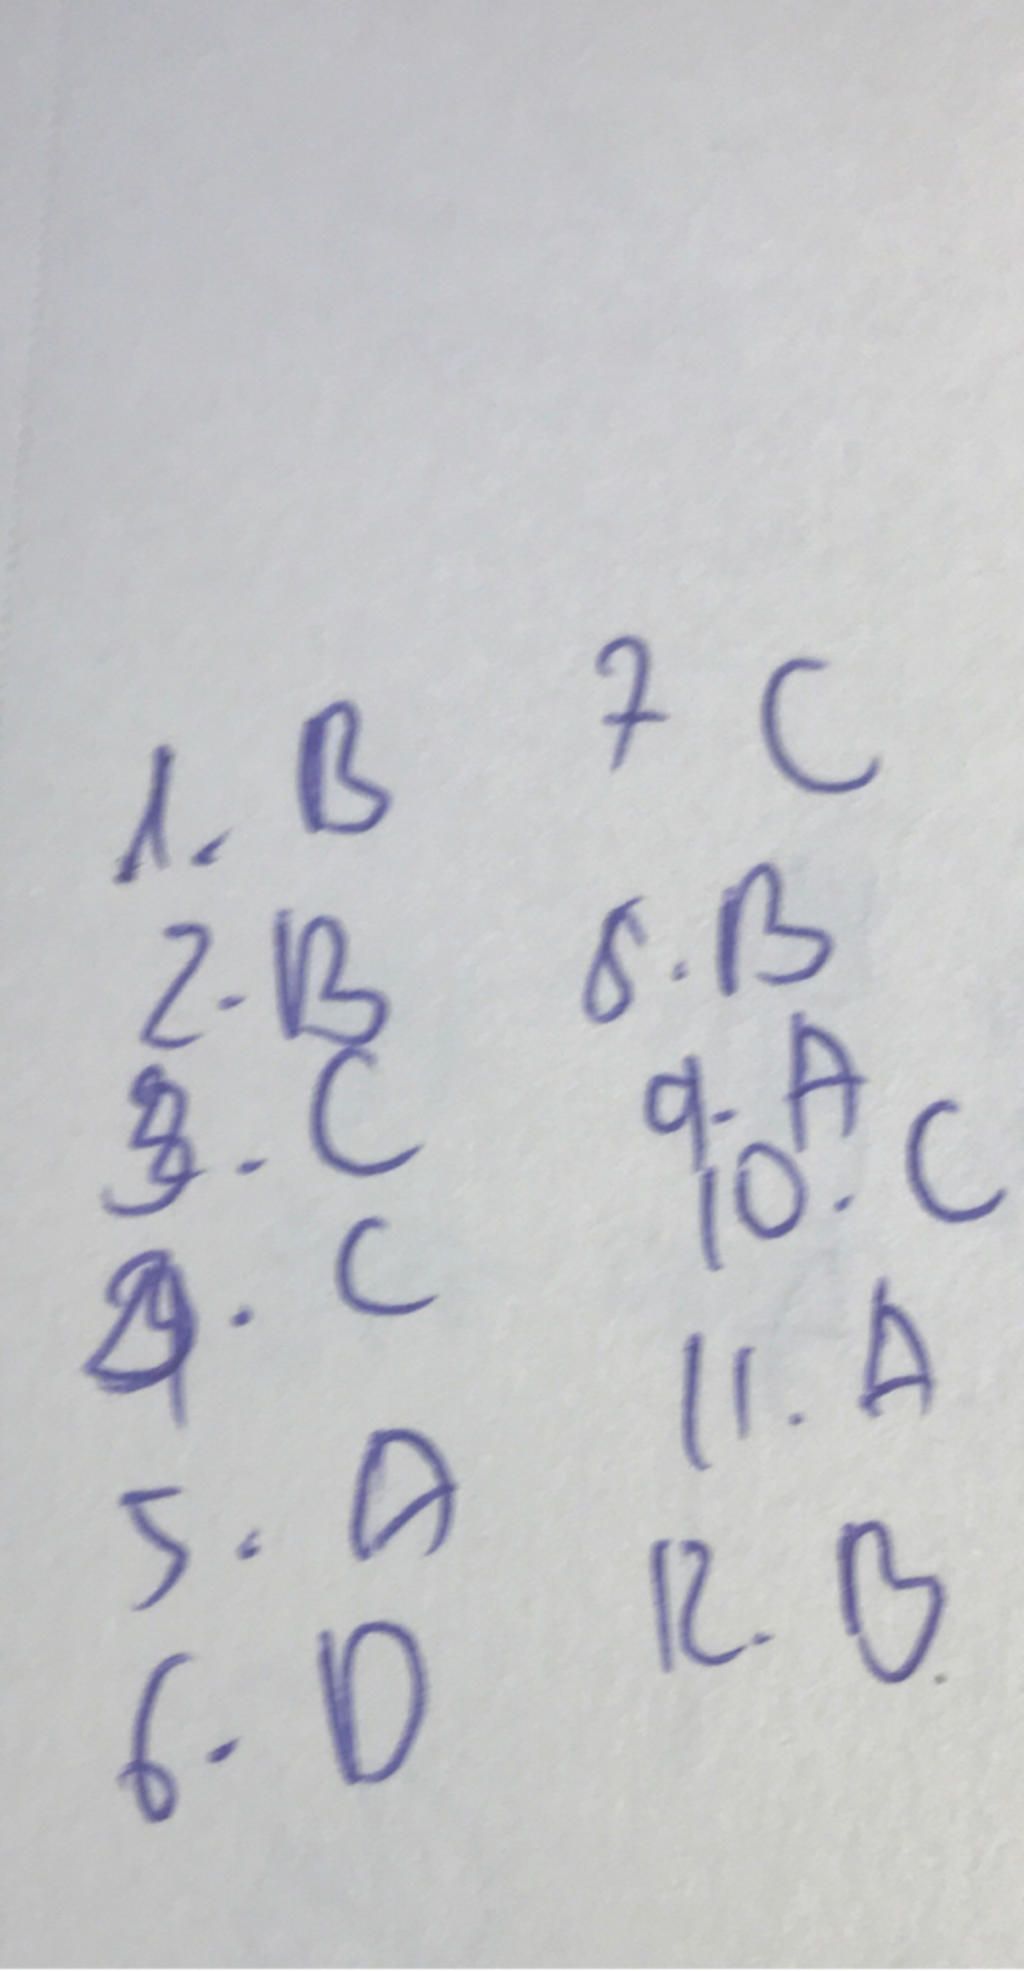 1. B
2. B
3. C
4. C
5. A
6. D
7 C
8. B
9. A
10. C
11. A
12. B